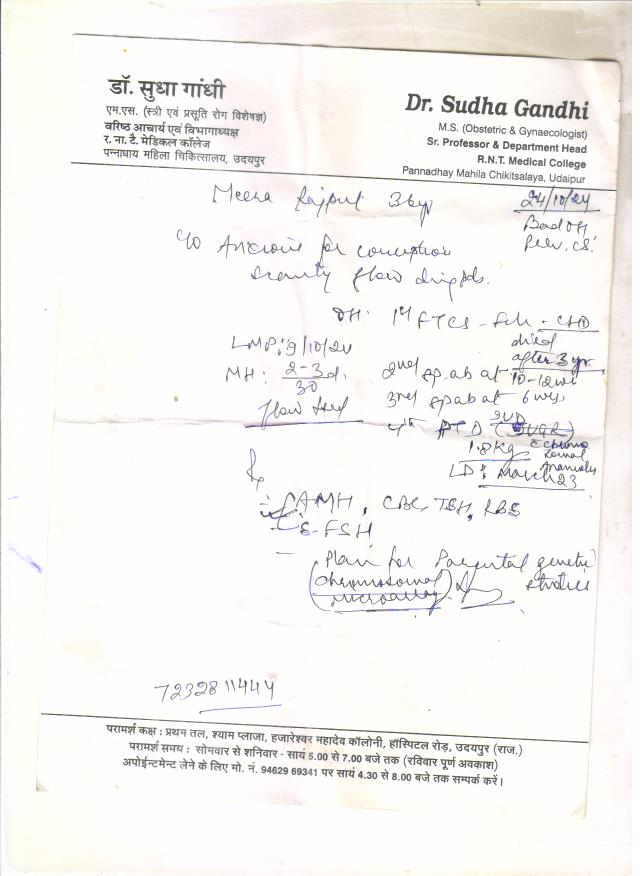 डॉ. सुधा गांधी
एम.एस. (स्त्री एवं प्रसूति रोग विशेषज्ञ)
वरिष्ठ आचार्य एवं विभागाध्यक्ष
र. ना. टै. मेडिकल कॉलेज
पन्नाधाय महिला चिकित्सालय, उदयपुर
Dr. Sudha Gandhi
M.S. (Obstetric & Gynaecologist)
Sr. Professor & Department Head
R.N.T. Medical College
Pannadhay Mahila Chikitsalaya, Udaipur
Meera Rajput 36yr
24/10/24
Bad OH
Prev. CS.
C/o Anxious for conception
Scanty flow
OH: 1st FTCS - CHD
died
after 3 yr.
LMP: 9/10/24
MH: 2-3d.
30
2nd sp. ab at 10-12 wk
3rd sp ab at 6 wks
flow
4th FTD (IUGR)
1.8 Kg
LD: March 23
Rx
AMH, CBC, TSH, RBS
S-FSH
Plan for Parental genetic
studies
(chromosomal
microarray)
7232811444
परामर्श कक्ष : प्रथम तल, श्याम प्लाजा, हजारेश्वर महादेव कॉलोनी, हॉस्पिटल रोड़, उदयपुर (राज.)
परामर्श समय : सोमवार से शनिवार - सायं 5.00 से 7.00 बजे तक (रविवार पूर्ण अवकाश)
अपोईन्टमेन्ट लेने के लिए मो. नं. 94629 69341 पर सायं 4.30 से 8.00 बजे तक सम्पर्क करें।